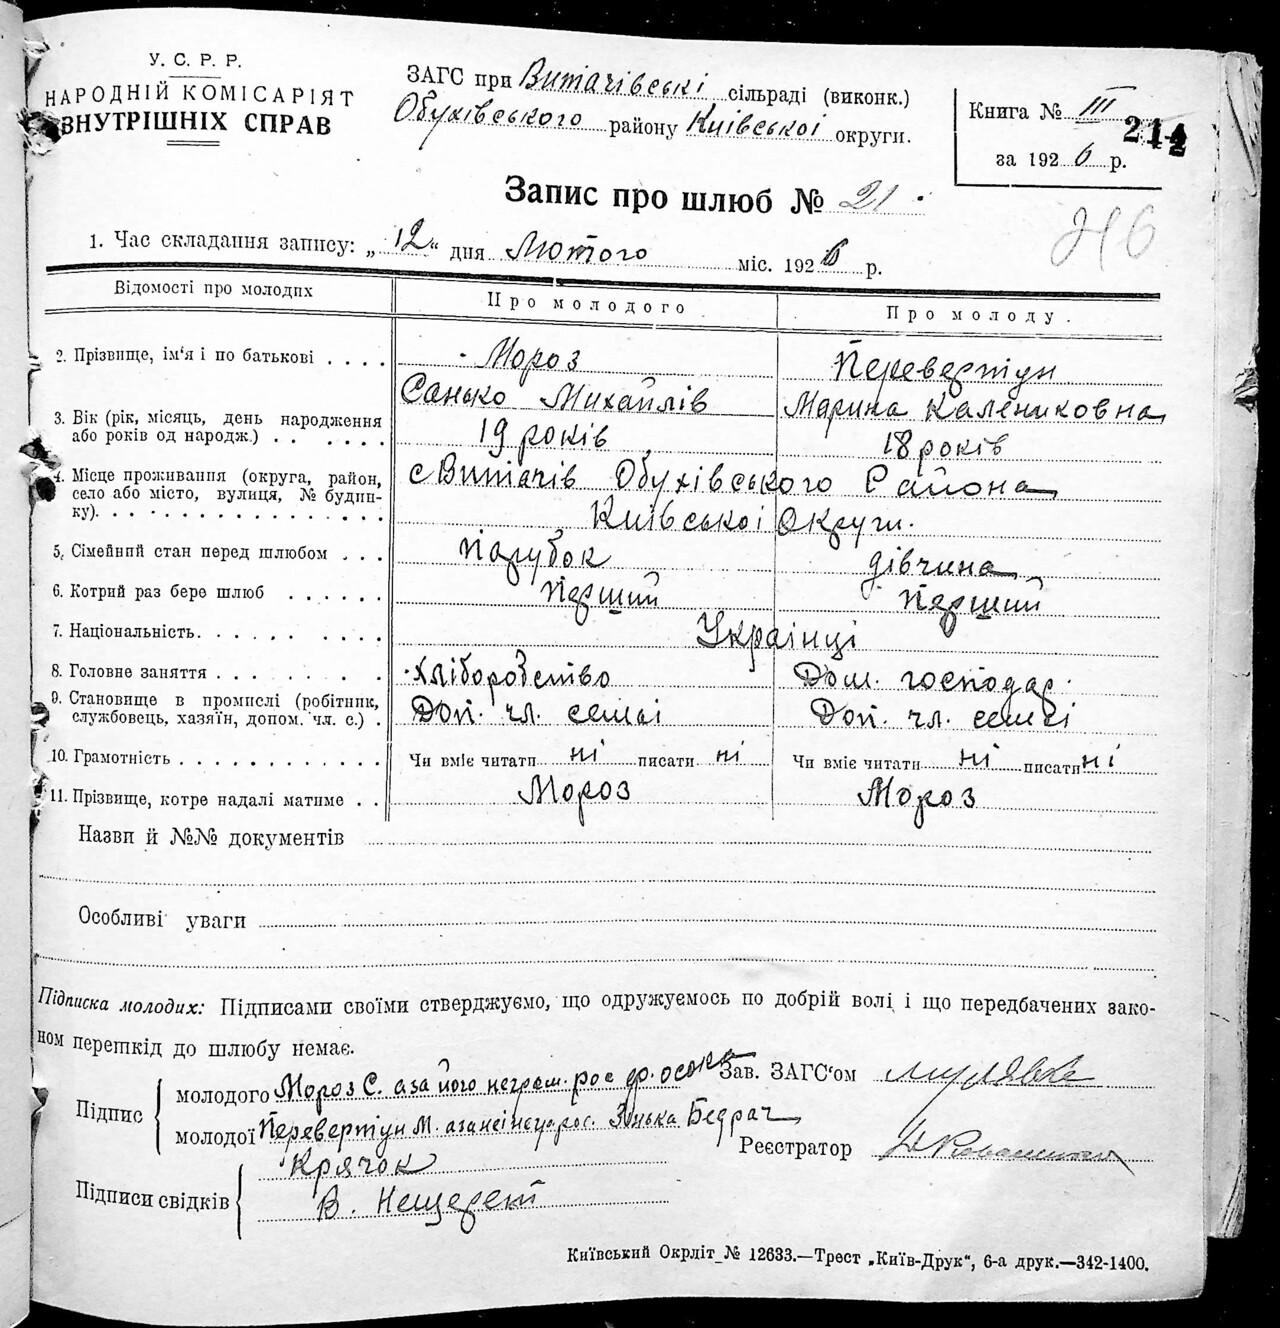 У. С. Р. Р.
НАРОДНІЙ КОМІСАРІЯТ
ВНУТРІШНІХ СПРАВ
ЗАГС при Витачівські сільраді (виконк.)
Обухівського району Київської округи.
Книга № III
за 1926 р.
Запис про шлюб № 21
246
1. Час складання запису: „12" дня Лютого міс. 1926 р.
Відомості про молодих
Про молодого
Про молоду.
2. Прізвище, ім'я і по батькові
Мороз
Санько Михайлів
Перевертун
Марина Калениковна
3. Вік (рік, місяць, день народження
або років од народж.)
19 років
18 років
4. Місце проживання (округа, район,
село або місто, вулиця, № будин-
ку)
с Витачів Обухівського Района
Київської Округи.
5. Сімейний стан перед шлюбом
Парубок
дівчина
6. Котрий раз бере шлюб
Перший
Перший
7. Національність
Українці
8. Головне заняття
Хліборобство
Дом. господар.
9. Становище в промислі (робітник,
службовець, хазяїн, допом. чл. с.)
Доп. чл. семьі
Доп. чл. семьі
10. Грамотність
Чи вміє читати ні писати ні
Чи вміє читати ні писати ні
11. Прізвище, котре надалі матиме
Мороз
Мороз
Назви й №№ документів
Особливі уваги
Підписка молодих: Підписами своїми стверджуємо, що одружуємось по добрій волі і що передбачених зако-
ном перешкід до шлюбу немає.
Підпис
молодого Мороз С. а за його неграм. рос
молодої Перевертун М. а за неї Зінька Бедрач
Зав. ЗАГС'ом
Реєстратор
Підписи свідків
Крячок
В. Нещерет
Київський Окрліт № 12633.—Трест „Київ-Друк", 6-а друк.—342-1400.